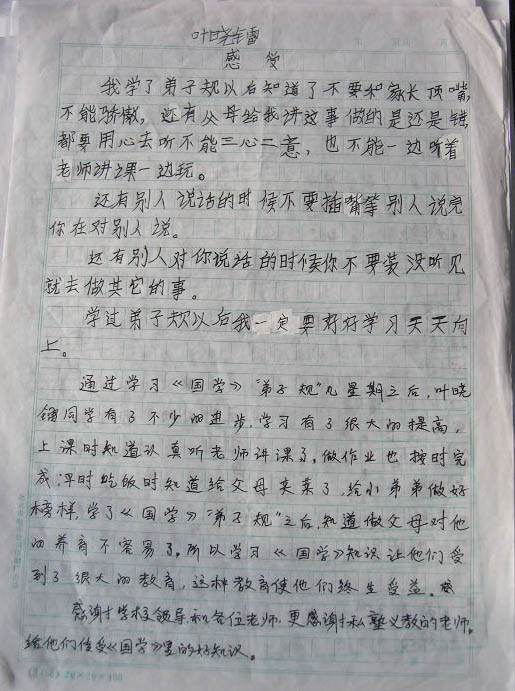 叶晓雷
感受
我学了弟子规以后知道了不要和家长顶嘴,
不能骄傲,还有父母给我讲这事做的是还是错
都要用心去听不能三心二意,也不能一边听着
老师讲课一边玩。
还有别人说话的时候不要插嘴等别人说完
你在对别人说。
还有别人对你说话的时候你不要装没听见
就去做其它的事。
学过弟子规以后我一定要好好学习天天向
上。
通过学习《国学》"弟子规"几星期之后,叶晓
同学有了不少的进步.学习有了很大的提高,
上课时知道认真听老师讲课了,做作业也按时完
成,平时吃饭时知道给父母夹菜了,给小弟弟做好
榜样,学了《国学》"弟子规"之后,知道做父母对他
的养育不容易了。所以学习《国学》知识让他们受
到了很大的教育,这样教育使他们终生受益。感
感谢学校领导和各位老师.更感谢私塾义教的老师,
给他们传受《国学》里的好知识。
20×20=400